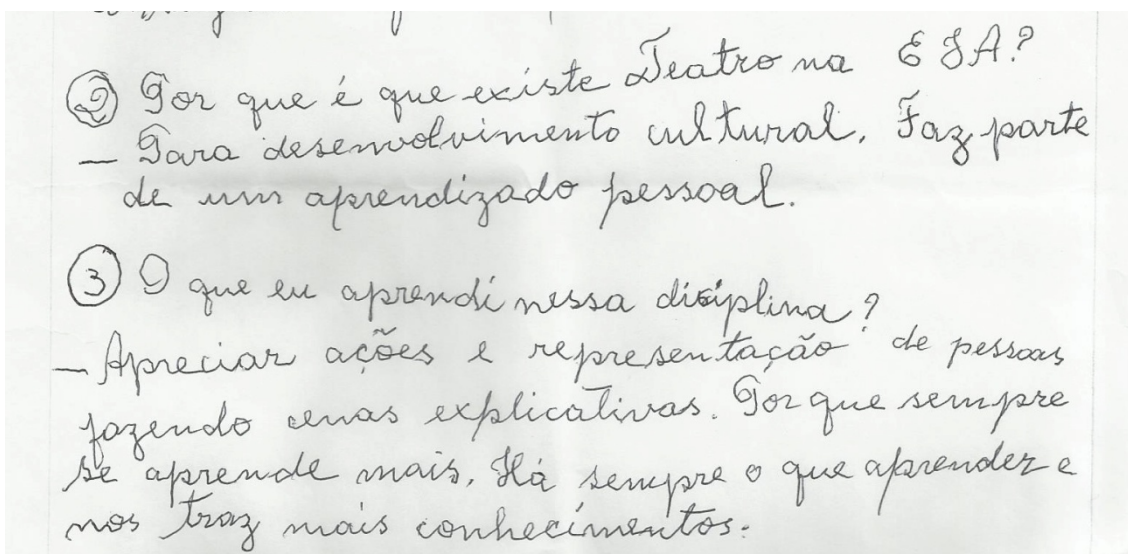 ② Por que é que existe Teatro na EJA?
— Para desenvolvimento cultural. Faz parte
de um aprendizado pessoal.
③ O que eu aprendi nessa disiplina?
— Apreciar ações e representação de pessoas
fazendo cenas explicativas. Por que sempre
se aprende mais. Há sempre o que aprender e
nos traz mais conhecimentos.